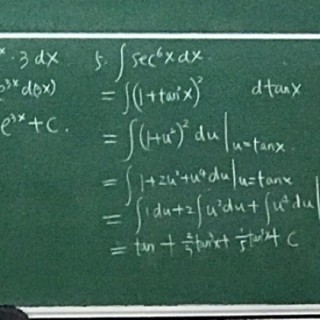 x · 3 dx
e^3x d(3x)
e^3x + C.
5. ∫ sec⁶x dx
= ∫(1+tan²x)² d tanx
= ∫(1+u²)² du |u=tanx.
= ∫ 1+2u²+u⁴ du |u=tanx
= ∫1du+2∫u²du+∫u⁴du|
= tan + 2/3 tan³x + 1/5 tan⁵x + C